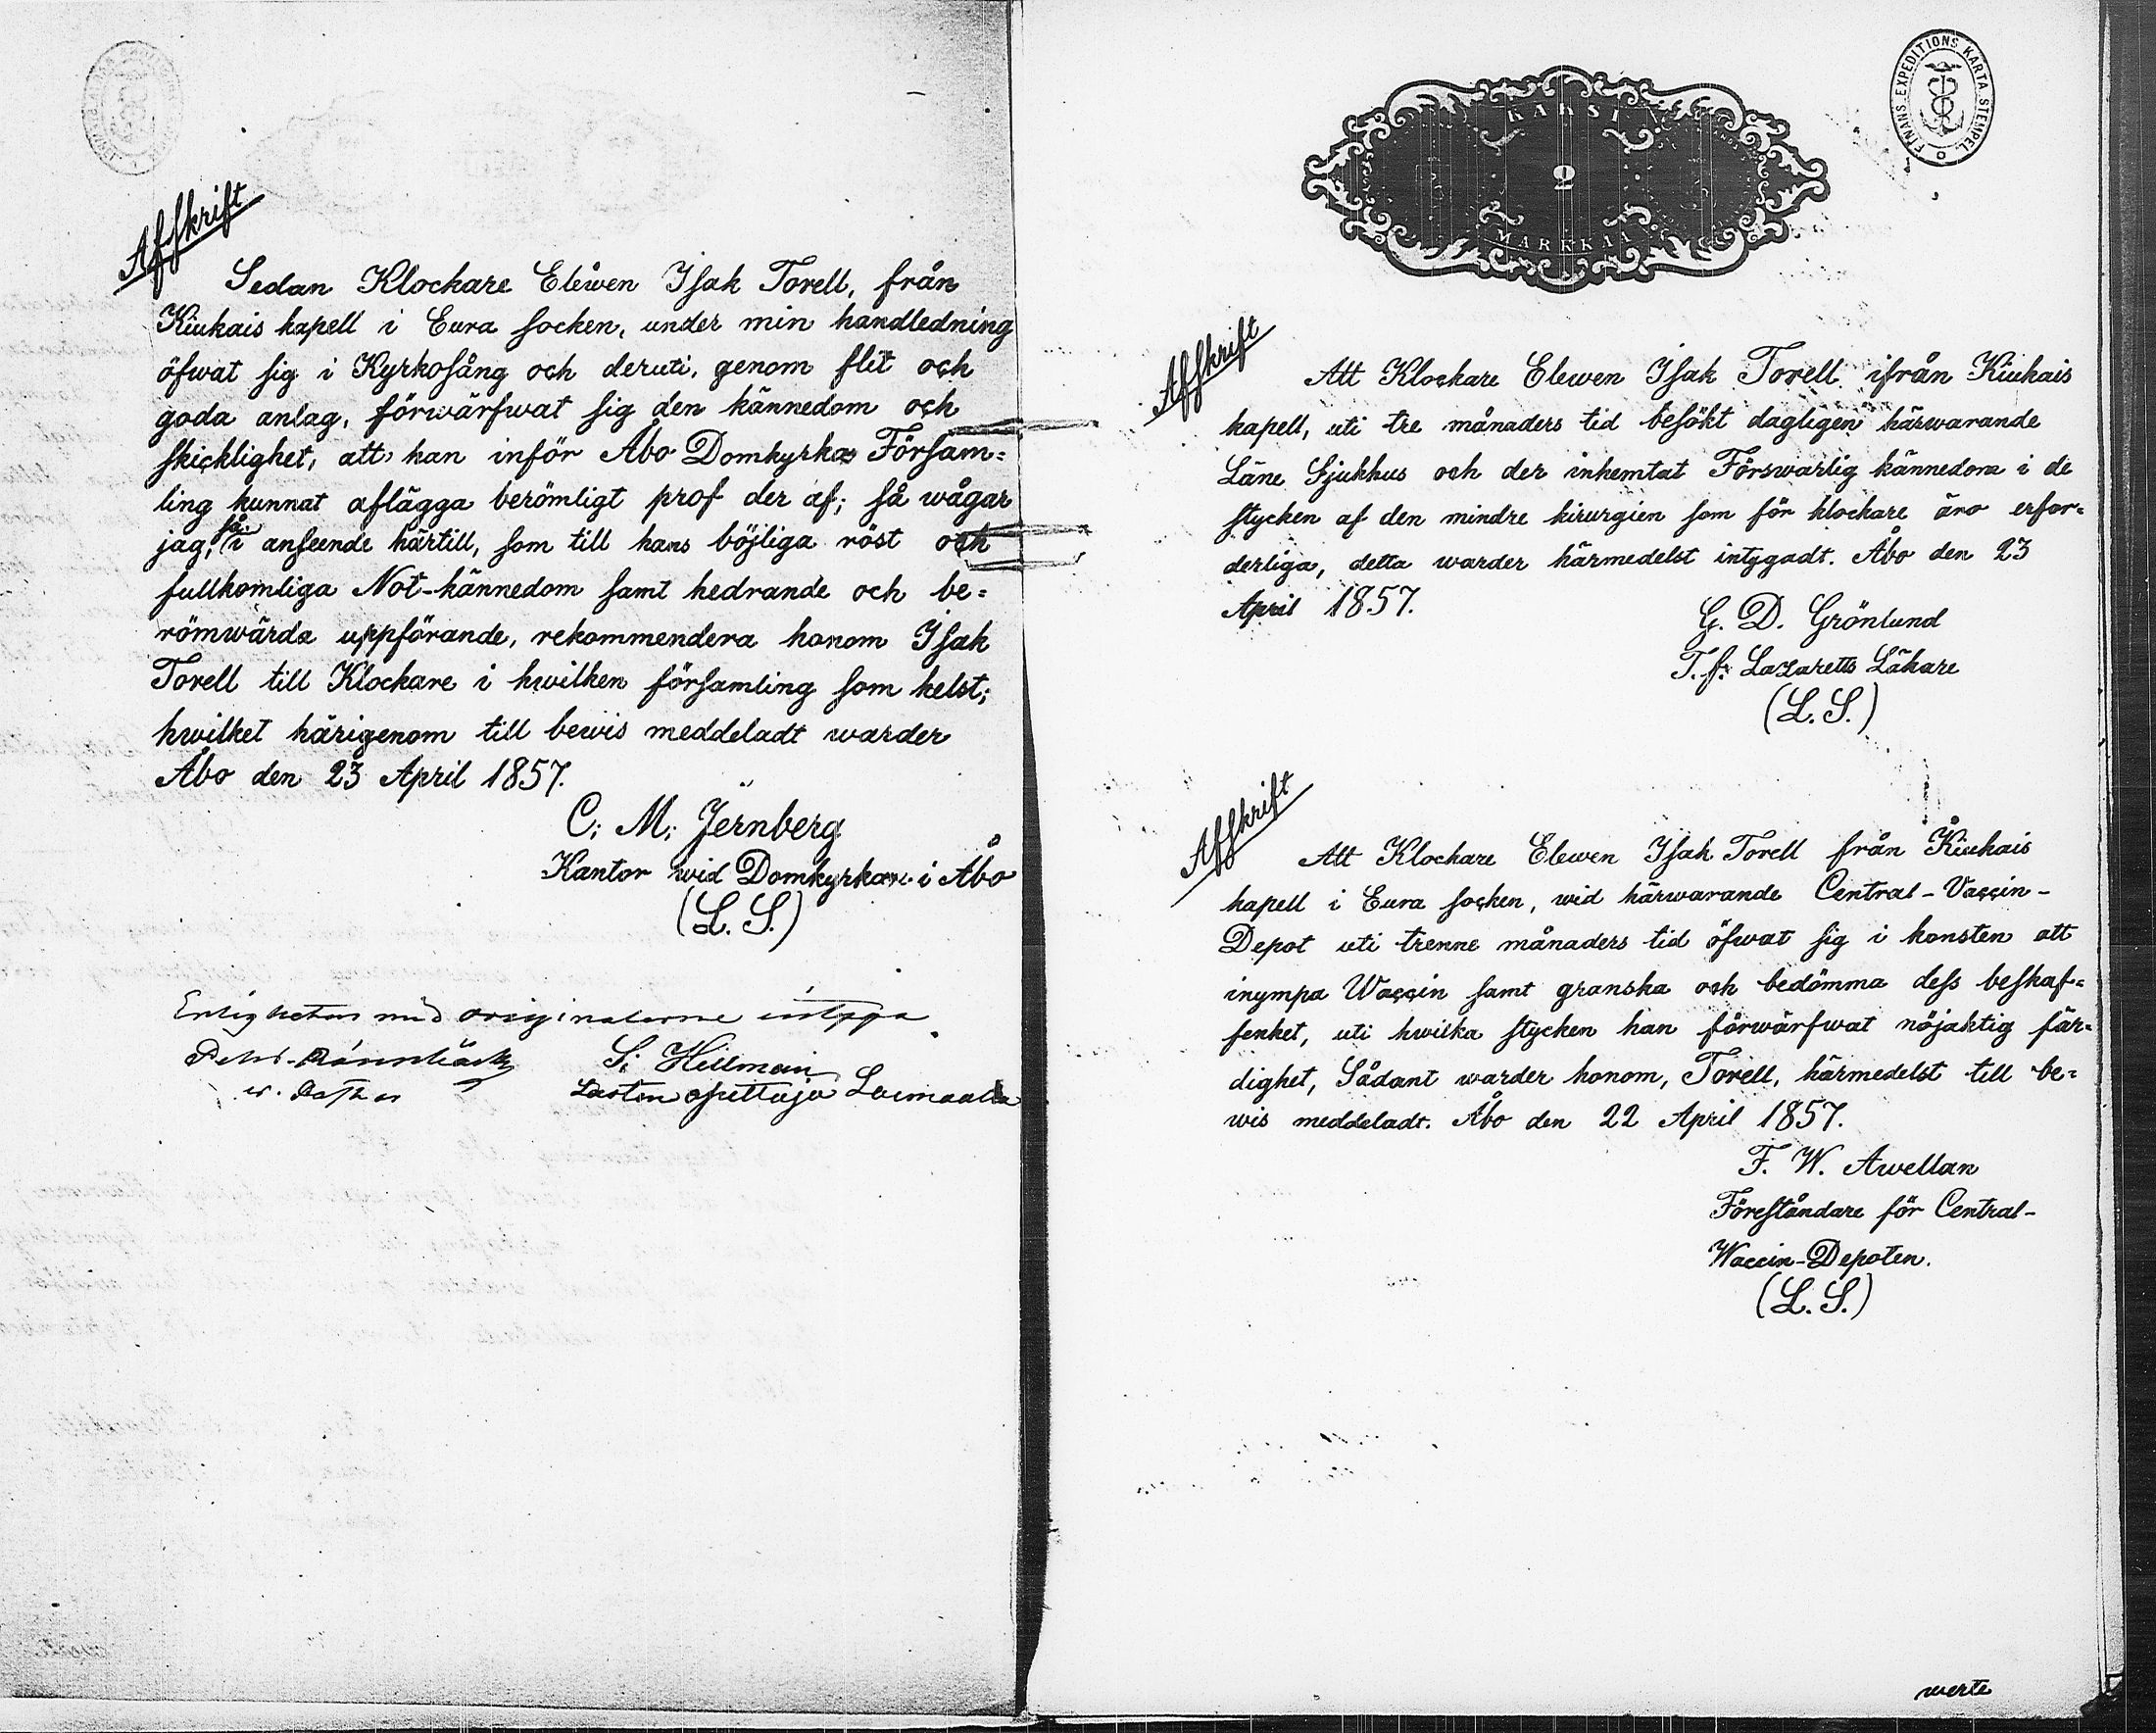 Afskrift
Sedan Klockare Eléwen Isak Torell, från
Kiukais kapell i Eura socken, under min handledning
öfwat sig i Kyrkosång och deruti, genom flit och
goda anlag, förwärfwat sig den kännedom och
skicklighet, att han inför Åbo Domkyrka Försam=
ling kunnat aflägga berömligt prof der af; så wågar
jag, så i anseende härtill, som till hans böjliga röst och
fullkomliga Not-kännedom samt hedrande och be=
römwärda uppförande, rekommendera honom Isak
Torell till Klockare i hwilken församling som helst;
hwilket härigenom till bewis meddeladt warder
Åbo den 23 April 1857.
C: M: Jernberg
Kantor wid Domkyrkan i Åbo
(L. S.)
Enligheten med originalerne intyga
S: Hillman
Lasten opettaja Loimaalla
KAKSI
2
MARKKAA
FINANS EXPEDITIONS KARTA STEMPEL
Afskrift
Att Klockare Elewen Isak Torell ifrån Kiukais
kapell, uti tre månaders tid besökt dagligen härwarande
Läne Sjukhus och der inhemtat Förswarlig kännedom i de
stycken af den mindre kirurgien som för klockare äro erfor=
derliga, detta warder härmedelst intygadt. Åbo den 23
April 1857.
G. D. Grönlund
T. f. Lazaretts Läkare
(L. S.)
Afskrift
Att Klockare Elewen Isak Torell från Kiukais
kapell i Eura socken, wid härwarande Central-Vaccin-
Depot uti trenne månaders tid öfwat sig i konsten att
inympa Waccin samt granska och bedömma dess beskaf=
fenhet, uti hwilka stycken han förwärfwat nöjaktig fär=
dighet, Sådant warder honom, Torell, härmedelst till be=
wis meddeladt. Åbo den 22 April 1857.
F. W. Awellan
Föreståndare för Central-
Waccin-Depoten.
(L. S.)
werte